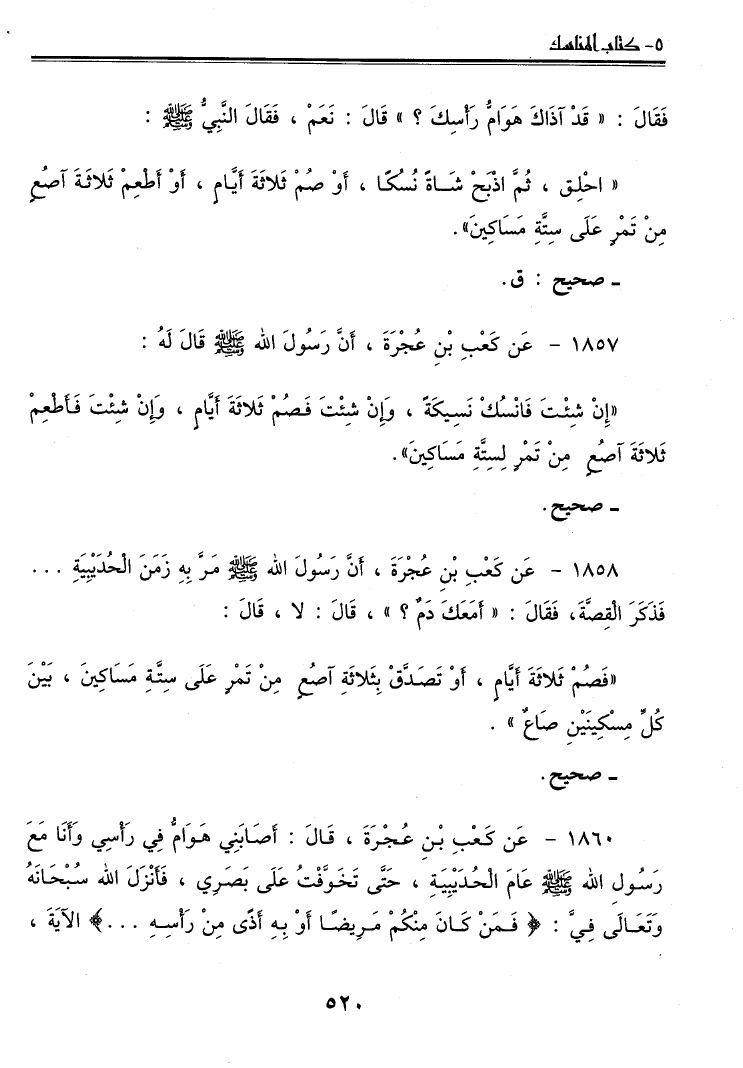 ٥- كتاب المناسك
فَقَالَ : « قَدْ آذَاكَ هَوَامُّ رَأْسِكَ ؟ » قَالَ : نَعَمْ ، فَقَالَ النَّبِيُّ ﷺ :
« احْلِق ، ثُمَّ اذْبَحْ شَاةً نُسُكًا ، أَوْ صُمْ ثَلاثَةَ أَيَّامٍ ، أَوْ أَطْعِمْ ثَلاثَةَ آصُعٍ
مِنْ تَمْرٍ عَلَى سِتَّةِ مَسَاكِينَ» .
ـ صحيح : ق.
١٨٥٧ - عَن كَعْبِ بْنِ عُجْرَةَ ، أَنَّ رَسُولَ الله ﷺ قَالَ لَهُ :
«إِنْ شِئْتَ فَانْسُكْ نَسِيكَةً ، وَإِنْ شِئْتَ فَصُمْ ثَلاثَةَ أَيَّامٍ ، وَإِنْ شِئْتَ فَأَطْعِمْ
ثَلاثَةَ آصُعٍ مِنْ تَمْرٍ لِسِتَّةِ مَسَاكِينَ» .
ـ صحيح.
١٨٥٨ - عَن كَعْبِ بْنِ عُجْرَةَ ، أَنَّ رَسُولَ الله ﷺ مَرَّ بِهِ زَمَنَ الْحُدَيْبِيَةِ ...
فَذَكَرَ الْقِصَّةَ، فَقَالَ : « أَمَعَكَ دَمٌ ؟ » ، قَالَ : لا ، قَالَ :
«فَصُمْ ثَلاثَةَ أَيَّامٍ ، أَوْ تَصَدَّقْ بِثَلاثَةِ آصُعٍ مِنْ تَمْرٍ عَلَى سِتَّةِ مَسَاكِينَ ، بَيْنَ
كُلِّ مِسْكِينَيْنِ صَاعٌ » .
ـ صحيح.
١٨٦٠ - عَن كَعْبِ بْنِ عُجْرَةَ ، قَالَ : أَصَابَنِي هَوَامُّ فِي رَأْسِي وَأَنَا مَعَ
رَسُولِ الله ﷺ عَامَ الْحُدَيْبِيَةِ ، حَتَّى تَخَوَّفْتُ عَلَى بَصَرِي ، فَأَنْزَلَ الله سُبْحَانَهُ
وَتَعَالَى فِيَّ : ﴿ فَمَنْ كَانَ مِنْكُمْ مَرِيضًا أَوْ بِهِ أَذًى مِنْ رَأْسِهِ ...﴾ الآيَةَ ،
٥٢٠